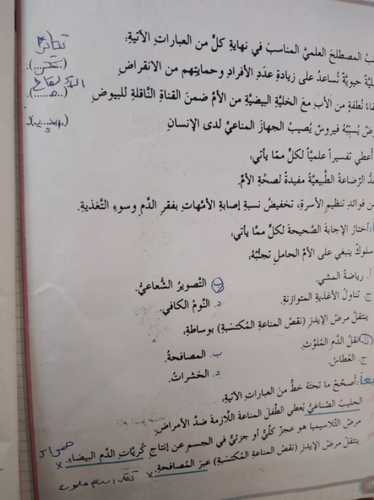 ب المصطلح العلميّ المناسب في نهاية كلّ من العبارات الآتية:
تكاثر
ليّة حيويّة تُساعدُ على زيادةِ عددِ الأفرادِ وحمايتهم من الانقراض (......)
قاءُ نُطفةٍ من الأبِ معَ الخليّةِ البيضيّةِ من الأمِّ ضمنَ القناةِ الناقلةِ للبيوضِ (......)
رضٌ يُسبّبُهُ فيروسٌ يُصيبُ الجهازَ المناعيَّ لدى الإنسانِ
أُعطي تفسيراً علميّاً لكلٍّ ممّا يأتي:
عدُّ الرّضاعةُ الطّبيعيّةُ مفيدةً لصحّةِ الأمِّ.
من فوائدِ تنظيمِ الأسرةِ، تخفيضُ نسبةِ إصابةِ الأمّهاتِ بفقرِ الدّمِ وسوءِ التّغذيةِ.
أختارُ الإجابةَ الصّحيحةَ لكلٍّ ممّا يأتي:
سلوكٌ ينبغي على الأمِّ الحاملِ تجنّبُهُ:
أ. رياضةُ المشي. ب. التّصويرُ الشّعاعيُّ.
ج. تناولُ الأغذيةِ المتوازنةِ. د. النّومُ الكافي.
ينتقلُ مرضُ الإيدزِ (نقصِ المناعةِ المُكتسَبةِ) بوساطةِ:
نقلُ الدّمِ المُلوّثِ. ب. المصافحةُ.
ج. العُطاسُ. د. الحشراتُ.
عاً: أصحّحُ ما تحتهُ خطٌّ منَ العباراتِ الآتيةِ.
الحليبُ الصّناعيُّ يُعطي الطّفلَ المناعةَ اللّازمةَ ضدَّ الأمراضِ.
مرضُ التّلاسيميا هو عجزٌ كلّيٌّ أو جزئيٌّ في الجسمِ عن إنتاجِ كُريّاتِ الدّمِ البيضاءِ. x
ينتقلُ مرضُ الإيدزِ (نقصِ المناعةِ المُكتسَبةِ) عبرَ المصافحةِ. x